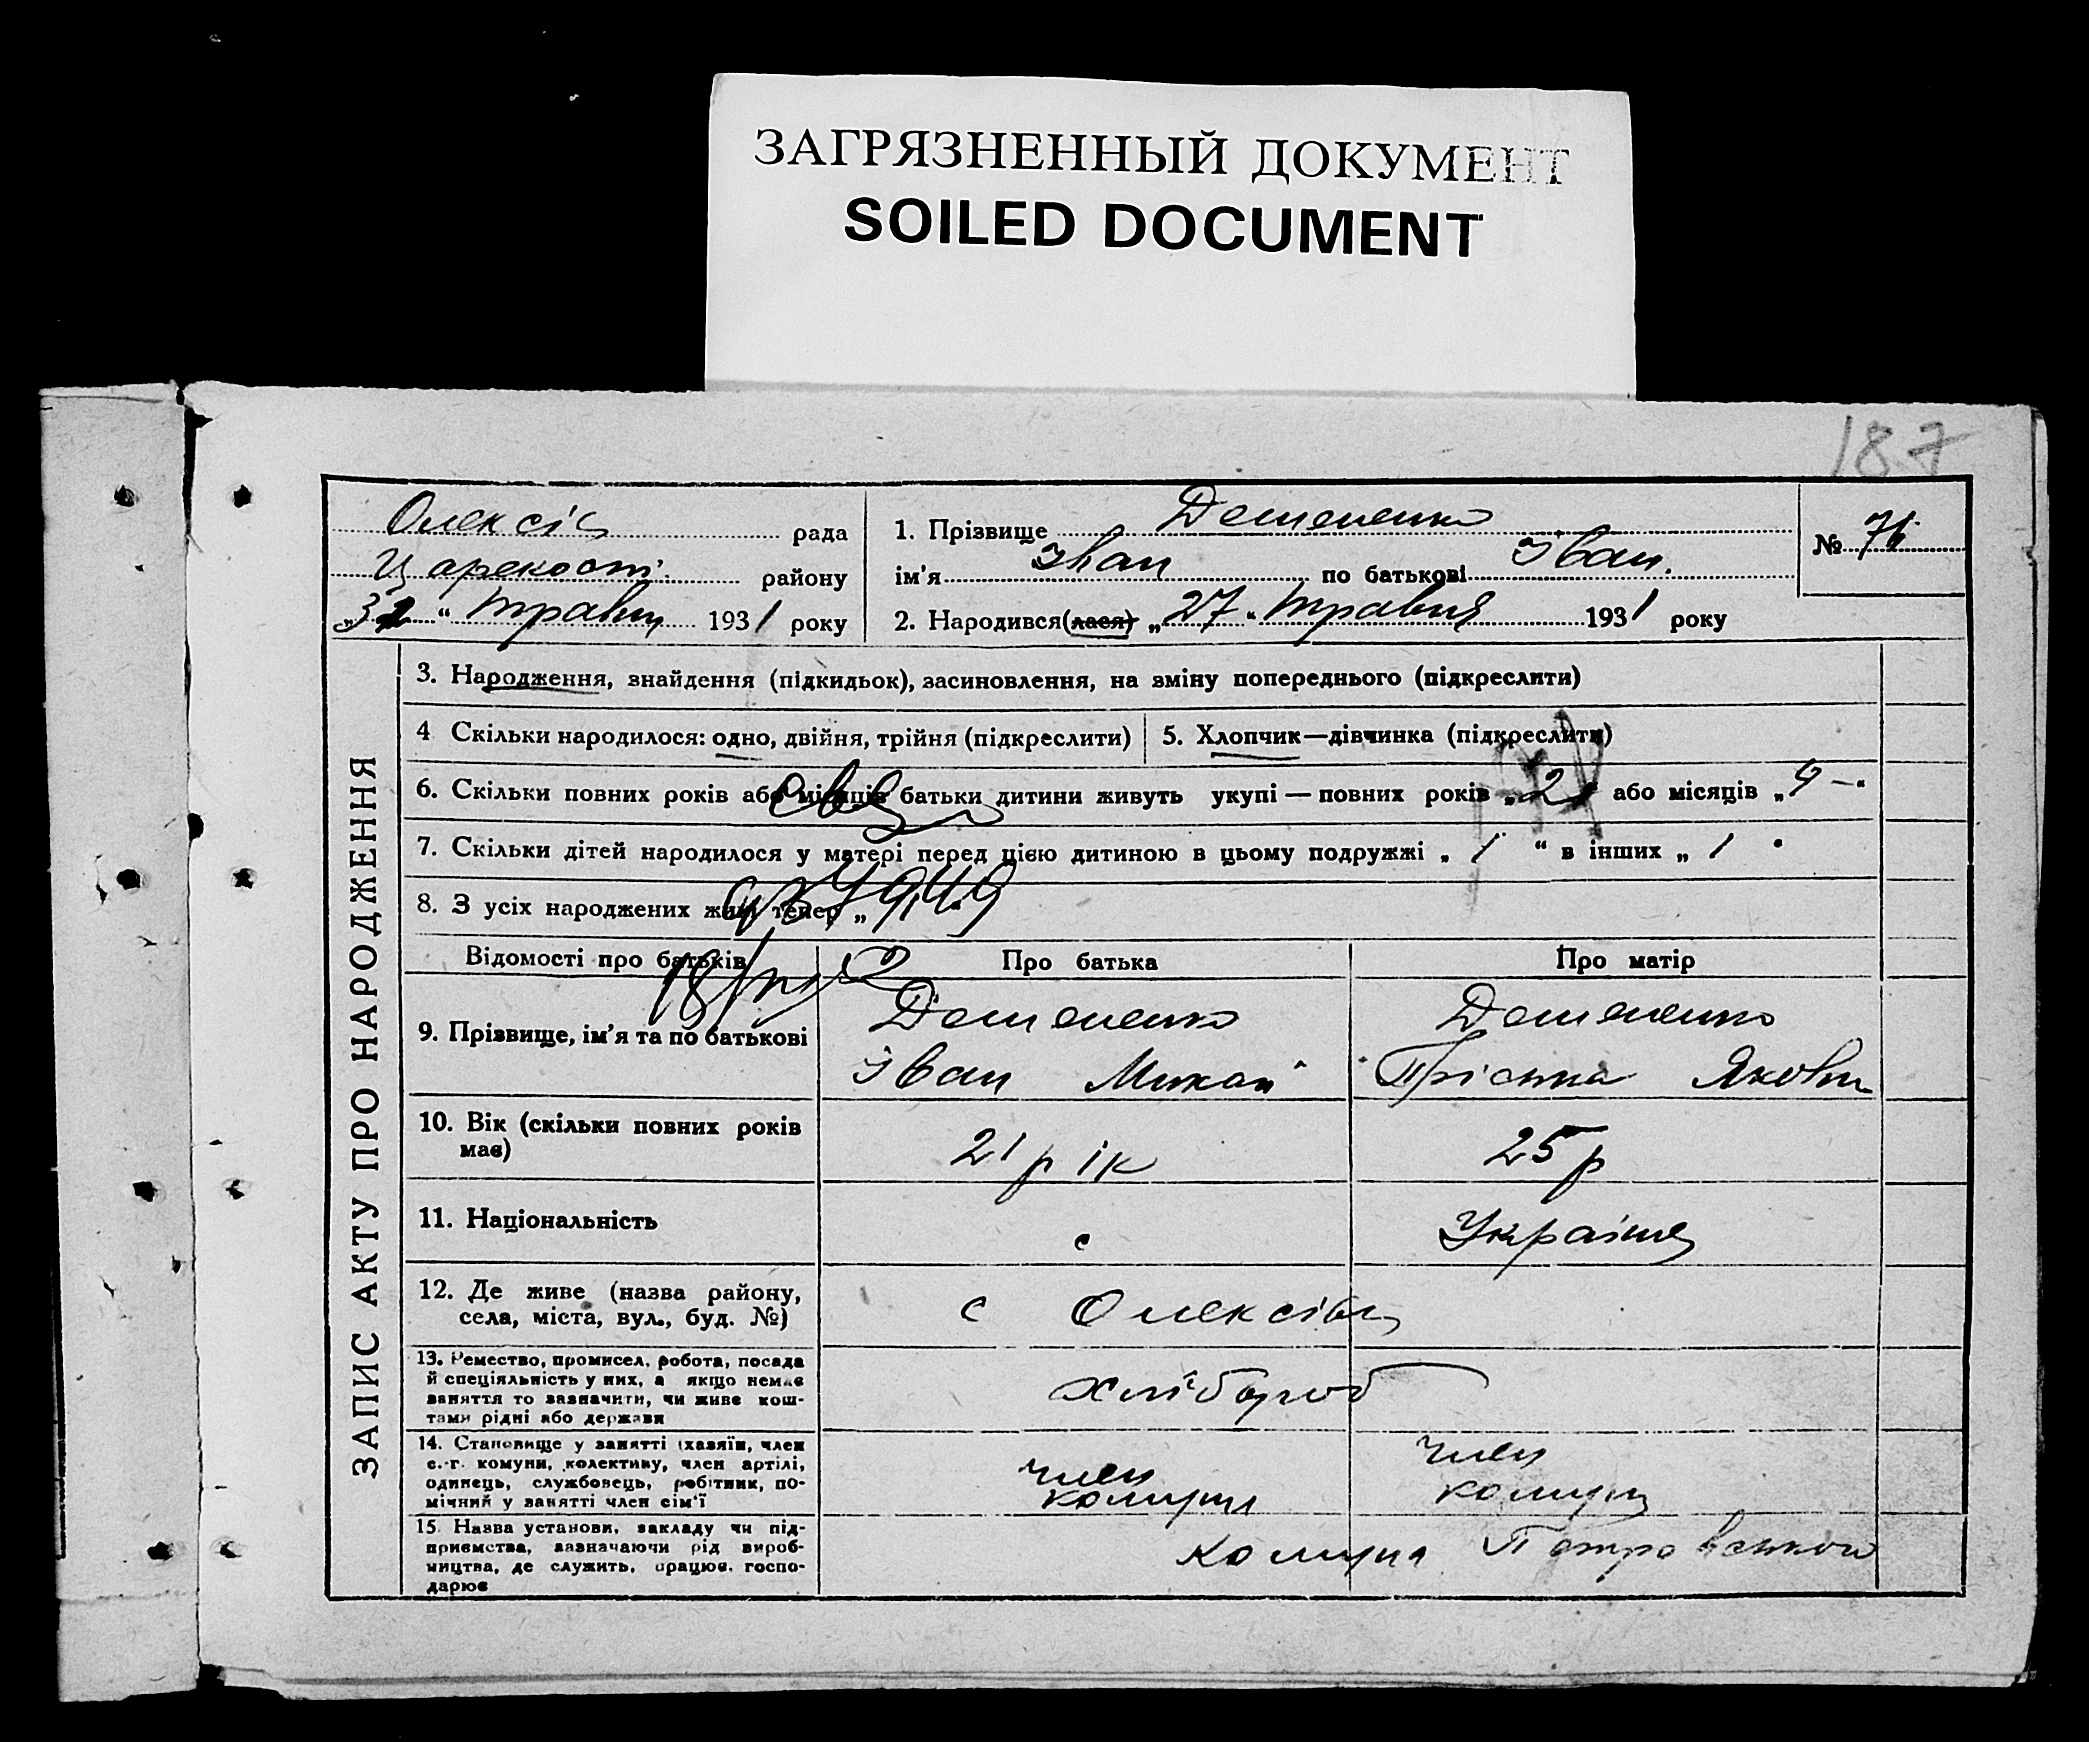 ЗАГРЯЗНЕННЫЙ ДОКУМЕНТ
SOILED DOCUMENT
187
Олексів рада
району
"31" травн 1931 року
1. Прізвище
ім'я Іван по батькові Іван.
2. Народився(лася) „27" травня 1931 року
№ 76
ЗАПИС АКТУ ПРО НАРОДЖЕННЯ
3. Народження, знайдення (підкидьок), засиновлення, на зміну попереднього (підкреслити)
4 Скільки народилося: одно, двійня, трійня (підкреслити)
5. Хлопчик—дівчинка (підкреслити)
6. Скільки повних років або місяців батьки дитини живуть укупі — повних років „2" або місяців „9 –"
7. Скільки дітей народилося у матері перед цією дитиною в цьому подружжі „1" в інших „1"
8. З усіх народжених живі тепер „
Відомості про батьків
Про батька
Про матір
9. Прізвище, ім'я та по батькові
Іван
Якови
10. Вік (скільки повних років має)
21 рік
25 р
11. Національність
с
Україн
12. Де живе (назва району, села, міста, вул., буд. №)
с Олексівц
13. Ремество, промисел, робота, посада
й спеціяльність у них, а якщо немає
заняття то зазначити, чи живе кош-
тами рідні або держави
хлібороб
14. Становище у занятті (хазяїн, член
с.-г. комуни, колективу, член артілі,
одинець, службовець, робітник, по-
мічний у занятті член сім'ї
член
комуни
член
комуни
15. Назва установи, закладу чи під-
приємства, зазначаючи рід вироб-
ництва, де служить, працює, госпо-
дарює
Комуна Петровського